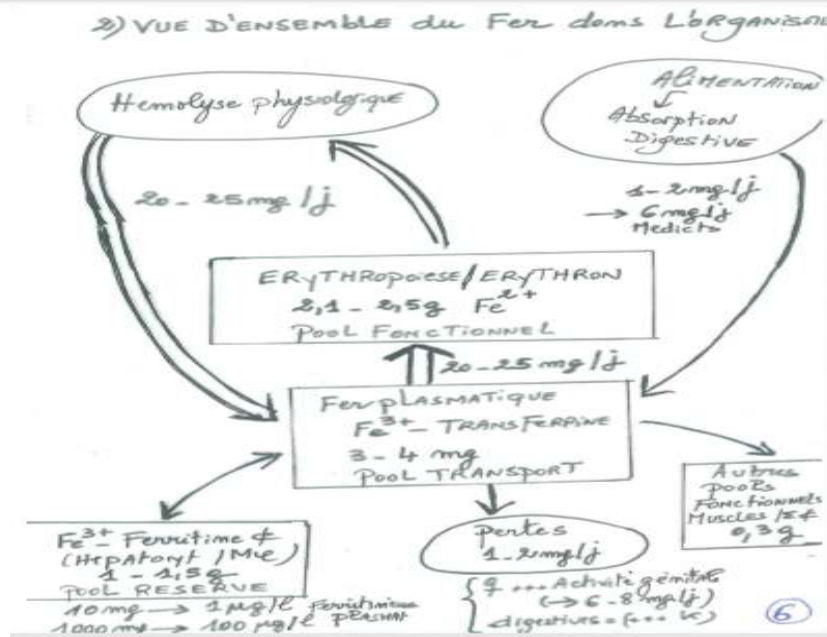 2) VUE D'ENSEMBLE du Fer dans L'ORGANISM
Hemolyse physiologique
ALIMENTATION
Absorption
Digestive
20 - 25 mg/j
1 - 2 mg/j
→ 6 mg/j
Medicts
ERYTHROPOIESE/ERYTHRON
2,1 - 2,5g Fe2+
POOL FONCTIONNEL
20 - 25 mg/j
Fer PLASMATIQUE
Fe3+ - TRANSFERRINE
3 - 4 mg
POOL TRANSPORT
Autres
pools
FONCTIONNELS
Muscles /
0,3g
Fe3+ - Ferritine
(HEPATOCYT /
1 - 1,5g
POOL RESERVE
10 mg → 1 µg/l Ferritinemie
1000 mg → 100 µg/l PLASMAT
Pertes
1-2 mg/j
... Activité génitale
(→ 6-8 mg/j)
digestives = (...
6